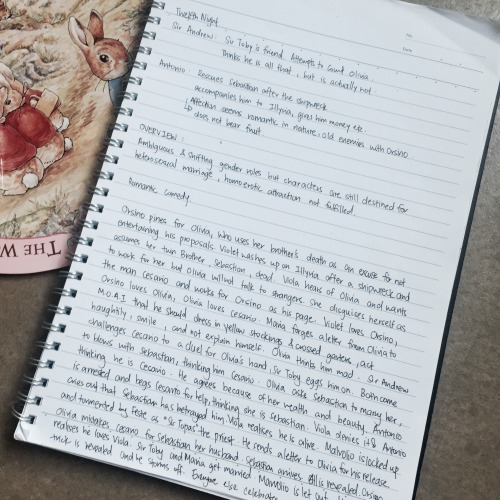 No:
Date:
Twelfth Night
Sir Andrew: Sir Toby's friend. Attempts to count Olivia.
Thinks he is all that, but is actually not.
Antonio: Rescues Sebastian after the shipwreck
accompanies him to Illyria, gives him money etc.
↳ Affection seems romantic in nature, old enemies with Orsino
does not bear fruit.
OVERVIEW:
Ambiguous & Shifting gender roles but characters are still destined for
heterosexual marriage, homoerotic attraction not fulfilled.
Romantic comedy.
Orsino pines for Olivia, who uses her brother's death as an excuse for not
entertaining his proposals. Violet washes up on Illyria after a shipwreck and
assumes her twin Brother, Sebastian, dead. Viola hears of Olivia and wants
to work for her but Olivia won't talk to strangers. She disguises herself as
the man Cesario and works for Orsino as his page. Violet loves Orsino,
Orsino loves Olivia, Olivia loves Cesario. Maria forges a letter from Olivia to
M.O.A.I that he should dress in yellow stockings & crossed garters, act
haughtily, smile, and not explain himself. Olivia thinks him mad. Sir Andrew
challenges Cesario to a duel for Olivia's hand, Sir Toby eggs him on. Both come
to blows with Sebastian, thinking him Cesario. Olivia asks Sebastian to marry her,
thinking he is Cesario. He agrees because of her wealth and beauty. Antonio
is arrested and begs Cesario for help, thinking she is Sebastian. Viola denies it & Antonio
cries out that Sebastian has betrayed him. Viola realises he is alive. Malvolio is locked up
and tormented by Feste as "Sir Topas" the priest. He sends a letter to Olivia for his release.
Olivia mistakes Cesario for Sebastian her husband. Sebastian arrives. All is revealed. Orsino
realises he loves Viola. Sir Toby and Maria get married. Malvolio is let out,
trick is revealed and he storms off. Everyone else celebrates
THE W